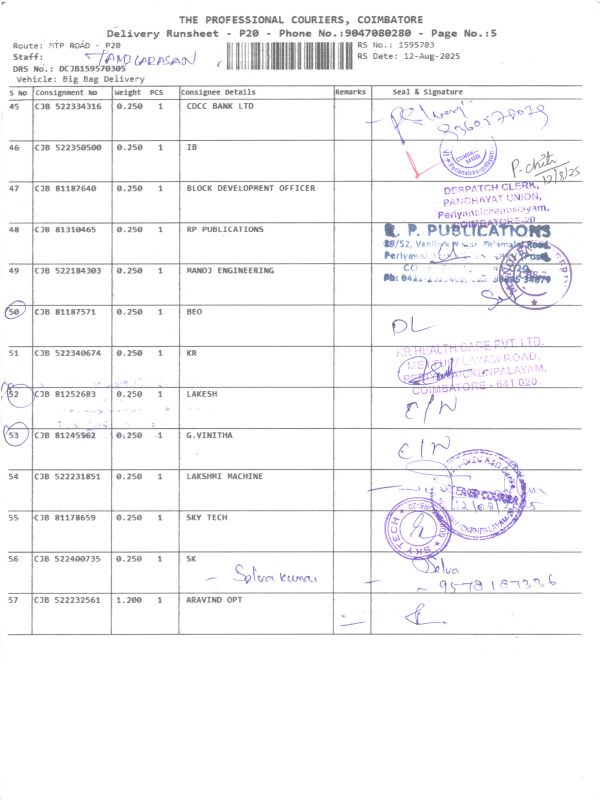 THE PROFESSIONAL COURIERS, COIMBATORE
Delivery Runsheet - P20 - Phone No.:9047080280 - Page No.:5
Route: MTP ROAD - P20 RS No.: 1595703
Staff: TAMILARASAN RS Date: 12-Aug-2025
DRS No.: DCJB159570305
Vehicle: Big Bag Delivery
S No Consignment No Weight PCS Consignee Details Remarks Seal & Signature
45 CJB 522334316 0.250 1 CDCC BANK LTD
9360578079
46 CJB 522350500 0.250 1 IB
P. chith
12/8/25
47 CJB 81187640 0.250 1 BLOCK DEVELOPMENT OFFICER
DESPATCH CLERK,
PANCHAYAT UNION,
Periyanaickenpalayam,
COIMBATORE-20
48 CJB 81310465 0.250 1 RP PUBLICATIONS
R. P. PUBLICATIONS
89/52,
49 CJB 522184303 0.250 1 MANOJ ENGINEERING
50 CJB 81187571 0.250 1 BEO
DL
51 CJB 522340674 0.250 1 KR
KR HEALTH CARE PVT LTD,
METTUPALAYAM ROAD,
PERIYANAICKENPALAYAM,
COIMBATORE - 641 020.
52 CJB 81252683 0.250 1 LAKESH
C/N
53 CJB 81245962 0.250 1 G.VINITHA
C/N
54 CJB 522231851 0.250 1 LAKSHMI MACHINE
55 CJB 81178659 0.250 1 SKY TECH
SKY TECH
56 CJB 522400735 0.250 1 SK
- Selva kumar
Selva
- 9578187336
57 CJB 522232561 1.200 1 ARAVIND OPT